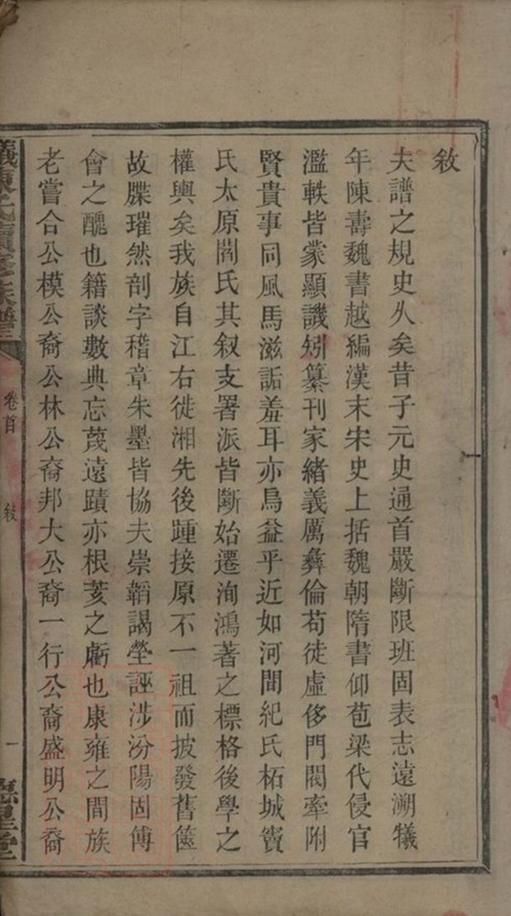 敘
夫譜之規史久矣昔子元史通首嚴斷限班固表志遠溯犧
年陳壽魏書越編漢末宋史上括魏朝隋書仰苞梁代侵官
濫軼皆蒙顯譏矧纂刊家緒義厲彝倫苟徒虛侈門閥牽附
賢貴事同風馬滋詬羞耳亦烏益乎近如河間紀氏柘城竇
氏太原閻氏其叙支署派皆斷始遷洵鴻著之標格後學之
權輿矣我族自江右徙湘先後踵接原不一祖而披發舊篋
故牒璀然剖字稽章朱墨皆協夫崇韜謁塋誣涉汾陽固傅
會之醜也籍談數典忘蔑遠蹟亦根荄之虧也康雍之間族
老嘗合公模公裔公林公裔邦大公裔一行公裔盛明公裔
陳氏續修族譜
卷首
敘
一